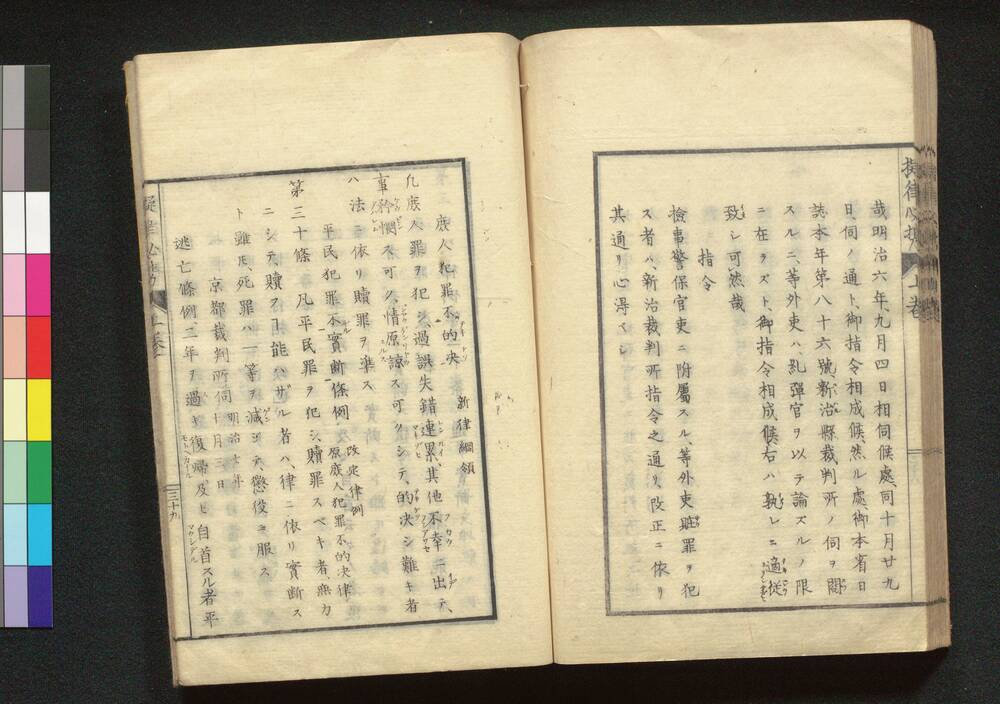 擬律必携 上巻
哉明治六年九月四日相伺候處同十月廿九
日、伺ノ通ト、御指令相成候、然ル處、御本省日
誌本年第八十六號、新治縣裁判所ノ伺ヲ閲
スルニ、等外吏ハ、糺彈官ヲ以テ論ズルノ限
ニ在ラズト、御指令相成候、右ハ孰レニ適從
致シ可然哉
指令
檢事警保官吏ニ附屬スル、等外吏賍罪ヲ犯
ス者ハ、新治裁判所指令之通リ、改正ニ依リ
其通リ心得ベシ
族人犯罪不的决 新律綱領
凡族人罪ヲ犯シ過誤失錯連累、其他不幸ニ出テ、
事矜憫ス可ク、情原諒ス可クシテ、的决シ難キ者
ハ法ニ依リ贖罪ヲ準ス
平民犯罪不實斷條例 改定律例 原族人犯罪不的决律
第三十條 凡平民罪ヲ犯シ、贖罪スベキ者、無力
ニシテ、贖フヿ能ハザル者ハ、律ニ依リ實斷ス
ト雖𪜈、死罪ハ一等ヲ減ジテ、懲役ニ服ス
京都裁判所伺 明治七年十月三日
逃亡條例二年ヲ過ギ復歸及ビ自首スル者平
擬律必携 上巻
三十九